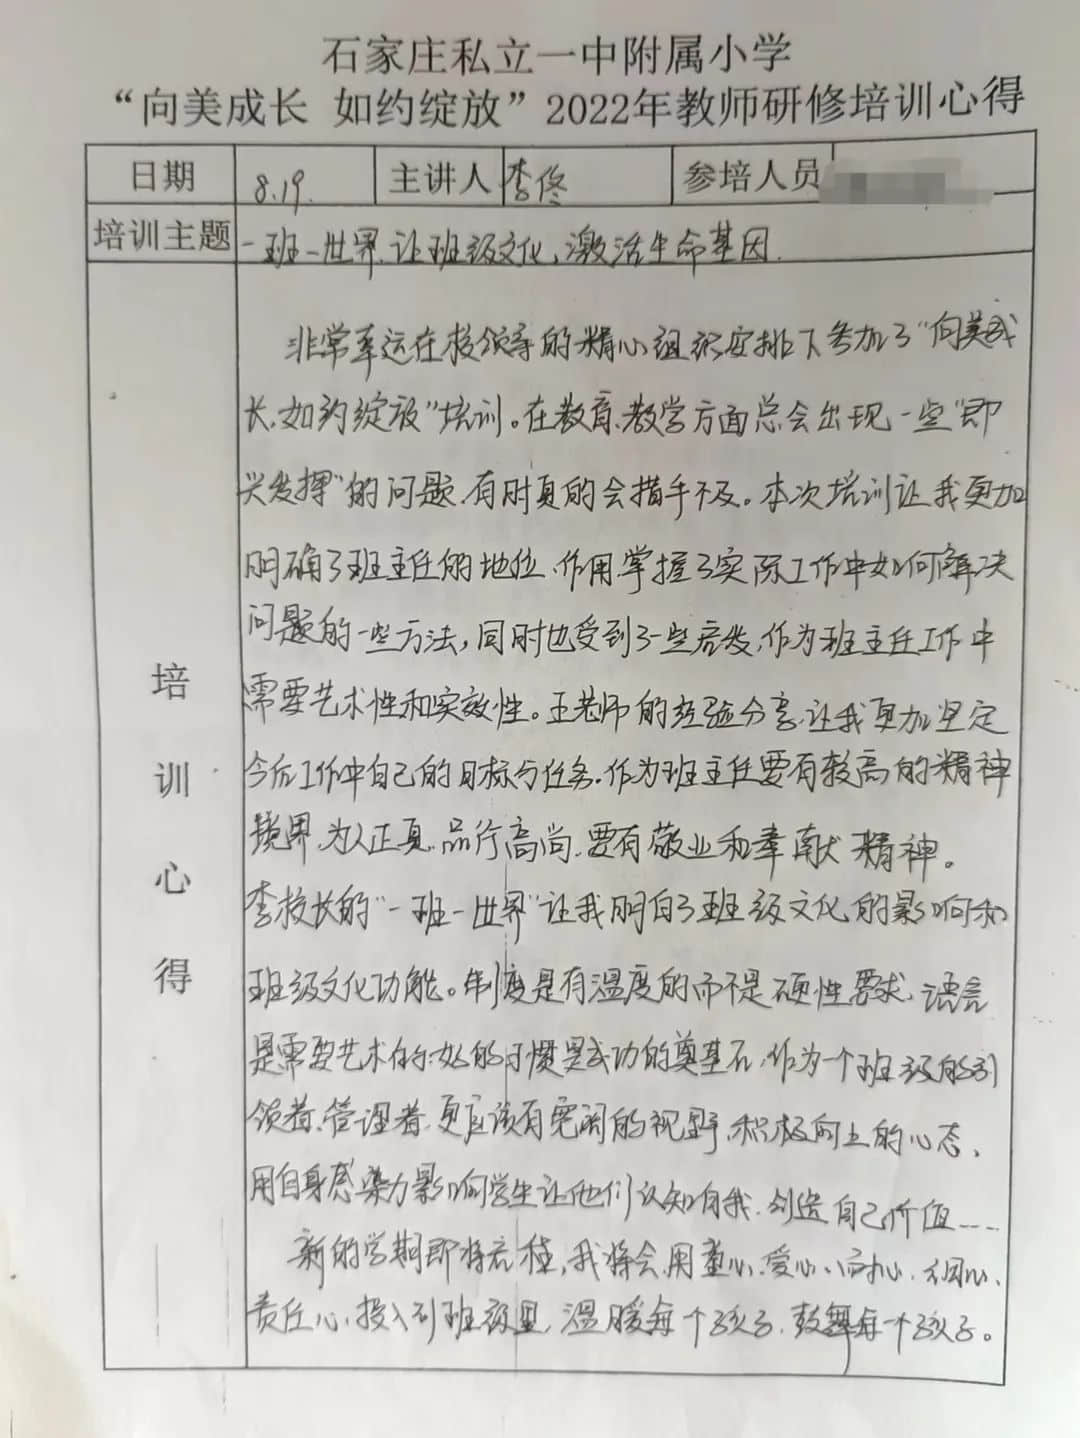 石家庄私立一中附属小学
“向美成长 如约绽放”2022年教师研修培训心得
日期 8.19. 主讲人 李佟 参培人员
培训主题 一班一世界.让班级文化,激活生命基因.
培训心得
非常幸运在校领导的精心组织安排下参加了“向美成
长,如约绽放”培训。在教育、教学方面总会出现一些“即
兴发挥”的问题,有时真的会措手不及。本次培训让我更加
明确了班主任的地位、作用,掌握了实际工作中如何解决
问题的一些方法,同时也受到了一些启发,作为班主任工作中
需要艺术性和实效性。王老师的经验分享,让我更加坚定
今后工作中自己的目标与任务.作为班主任要有较高的精神
境界,为人正直.品行高尚.要有敬业和奉献精神。
李校长的“一班一世界”让我明白了班级文化的影响和
班级文化功能。制度是有温度的而不是硬性要求,语言
是需要艺术的.好的习惯是成功的奠基石,作为一个班级的引
领者、管理者,更应该有宽阔的视野,积极向上的心态,
用自身感染力影响学生让他们认知自我.创造自己价值……
新的学期即将,我将会用童心、爱心、耐心、细心、
责任心,投入到班级里,温暖每一个孩子,鼓舞每一个孩子。